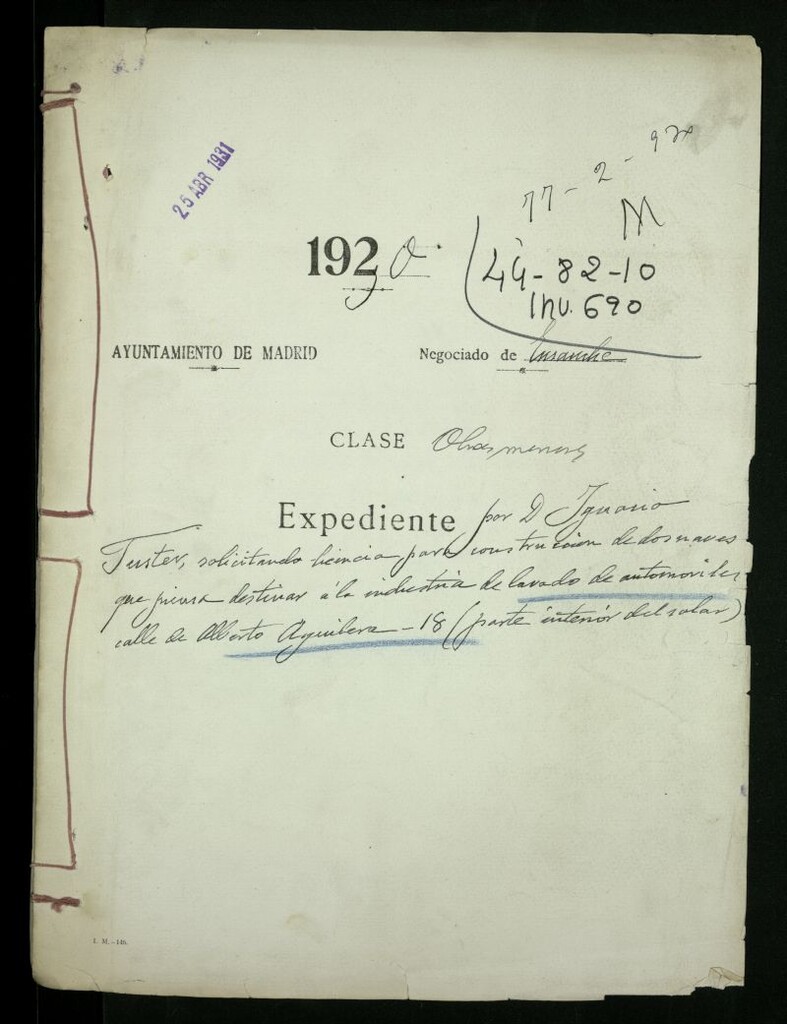 25 ABR 1931
77-2-920
M
1930
44-82-10
Inv. 690
AYUNTAMIENTO DE MADRID
Negociado de Ensanche
CLASE Obras menores
Expediente por D Ignacio
Fuster, solicitando licencia para construccion de dos naves
que piensa destinar á la industria de lavado de automoviles
calle de Alberto Aguilera - 18 (parte interior del solar)
I. M.-140.